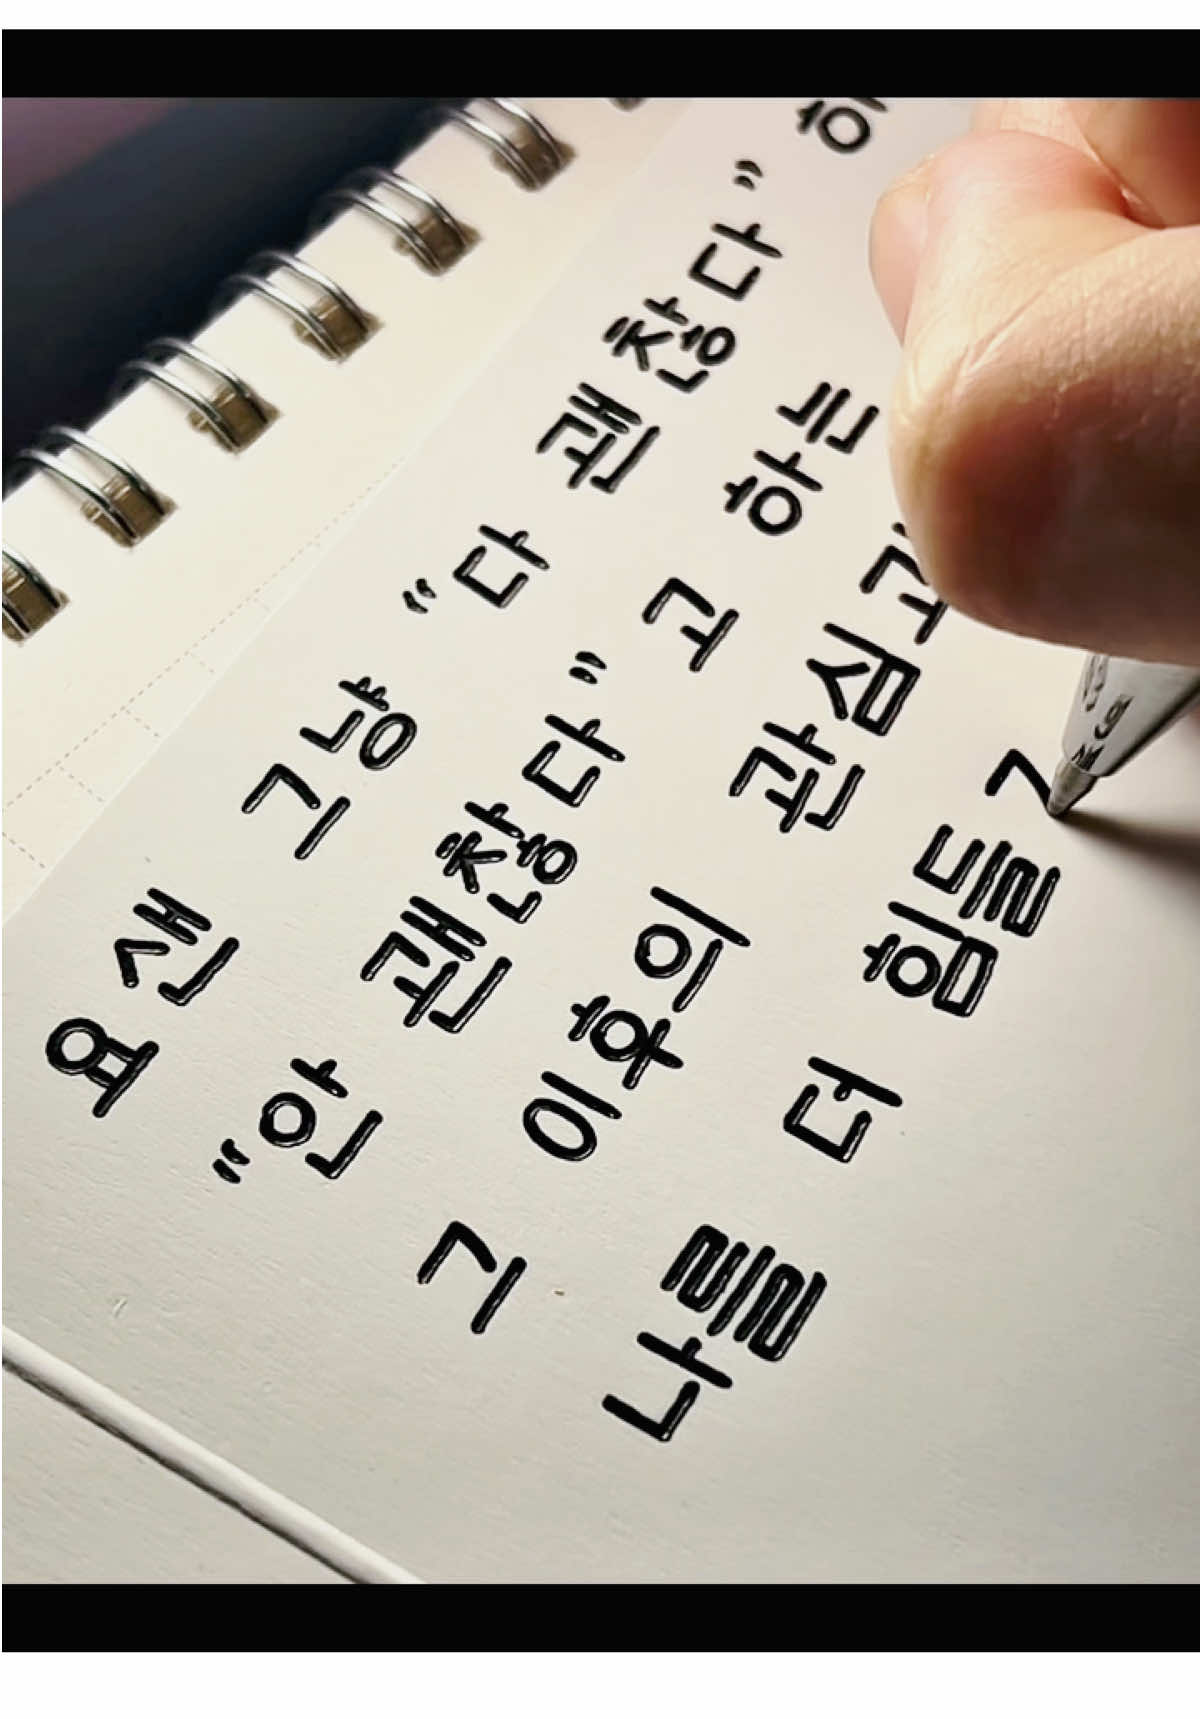 요샌 그냥 "다 괜찮다"
"안 괜찮다"고 하는
이후의 관심과
나를 더 힘들